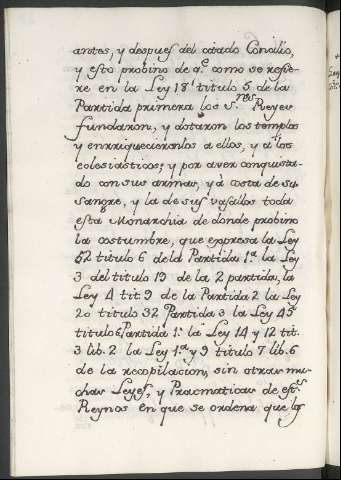 antes, y despues del citado Concilio,
y esto probino de q.e como se refie-
re en la Ley 18 titulo 5. de la
Partida primera los S.res Reyes
fundaron, y dotaron los templos
y enrriquecieronlos a ellos, y a los
eclesiasticos; y por aver conquista-
do con sus armas, y à costa de su
sangre, y la de sus vasallos toda
esta Monarchia de donde probino
la costumbre, que expresa la Ley
52 titulo 6 de la Partida 1.a la Ley
3 del titulo 19 de la 2 partida, la
Ley 4 tit. 9 de la Partida 2 la Ley
20 titulo 32 Partida 3 la Ley 45
titulo 6 Partida 1.a la Ley 14 y 12 tit.
3 lib. 2 la Ley 1.a y 9 titulo 7 lib. 6
de la recopilacion, sin otras mu-
chas Leyes, y Pracmaticas de est.s
Reynos en que se ordena que los